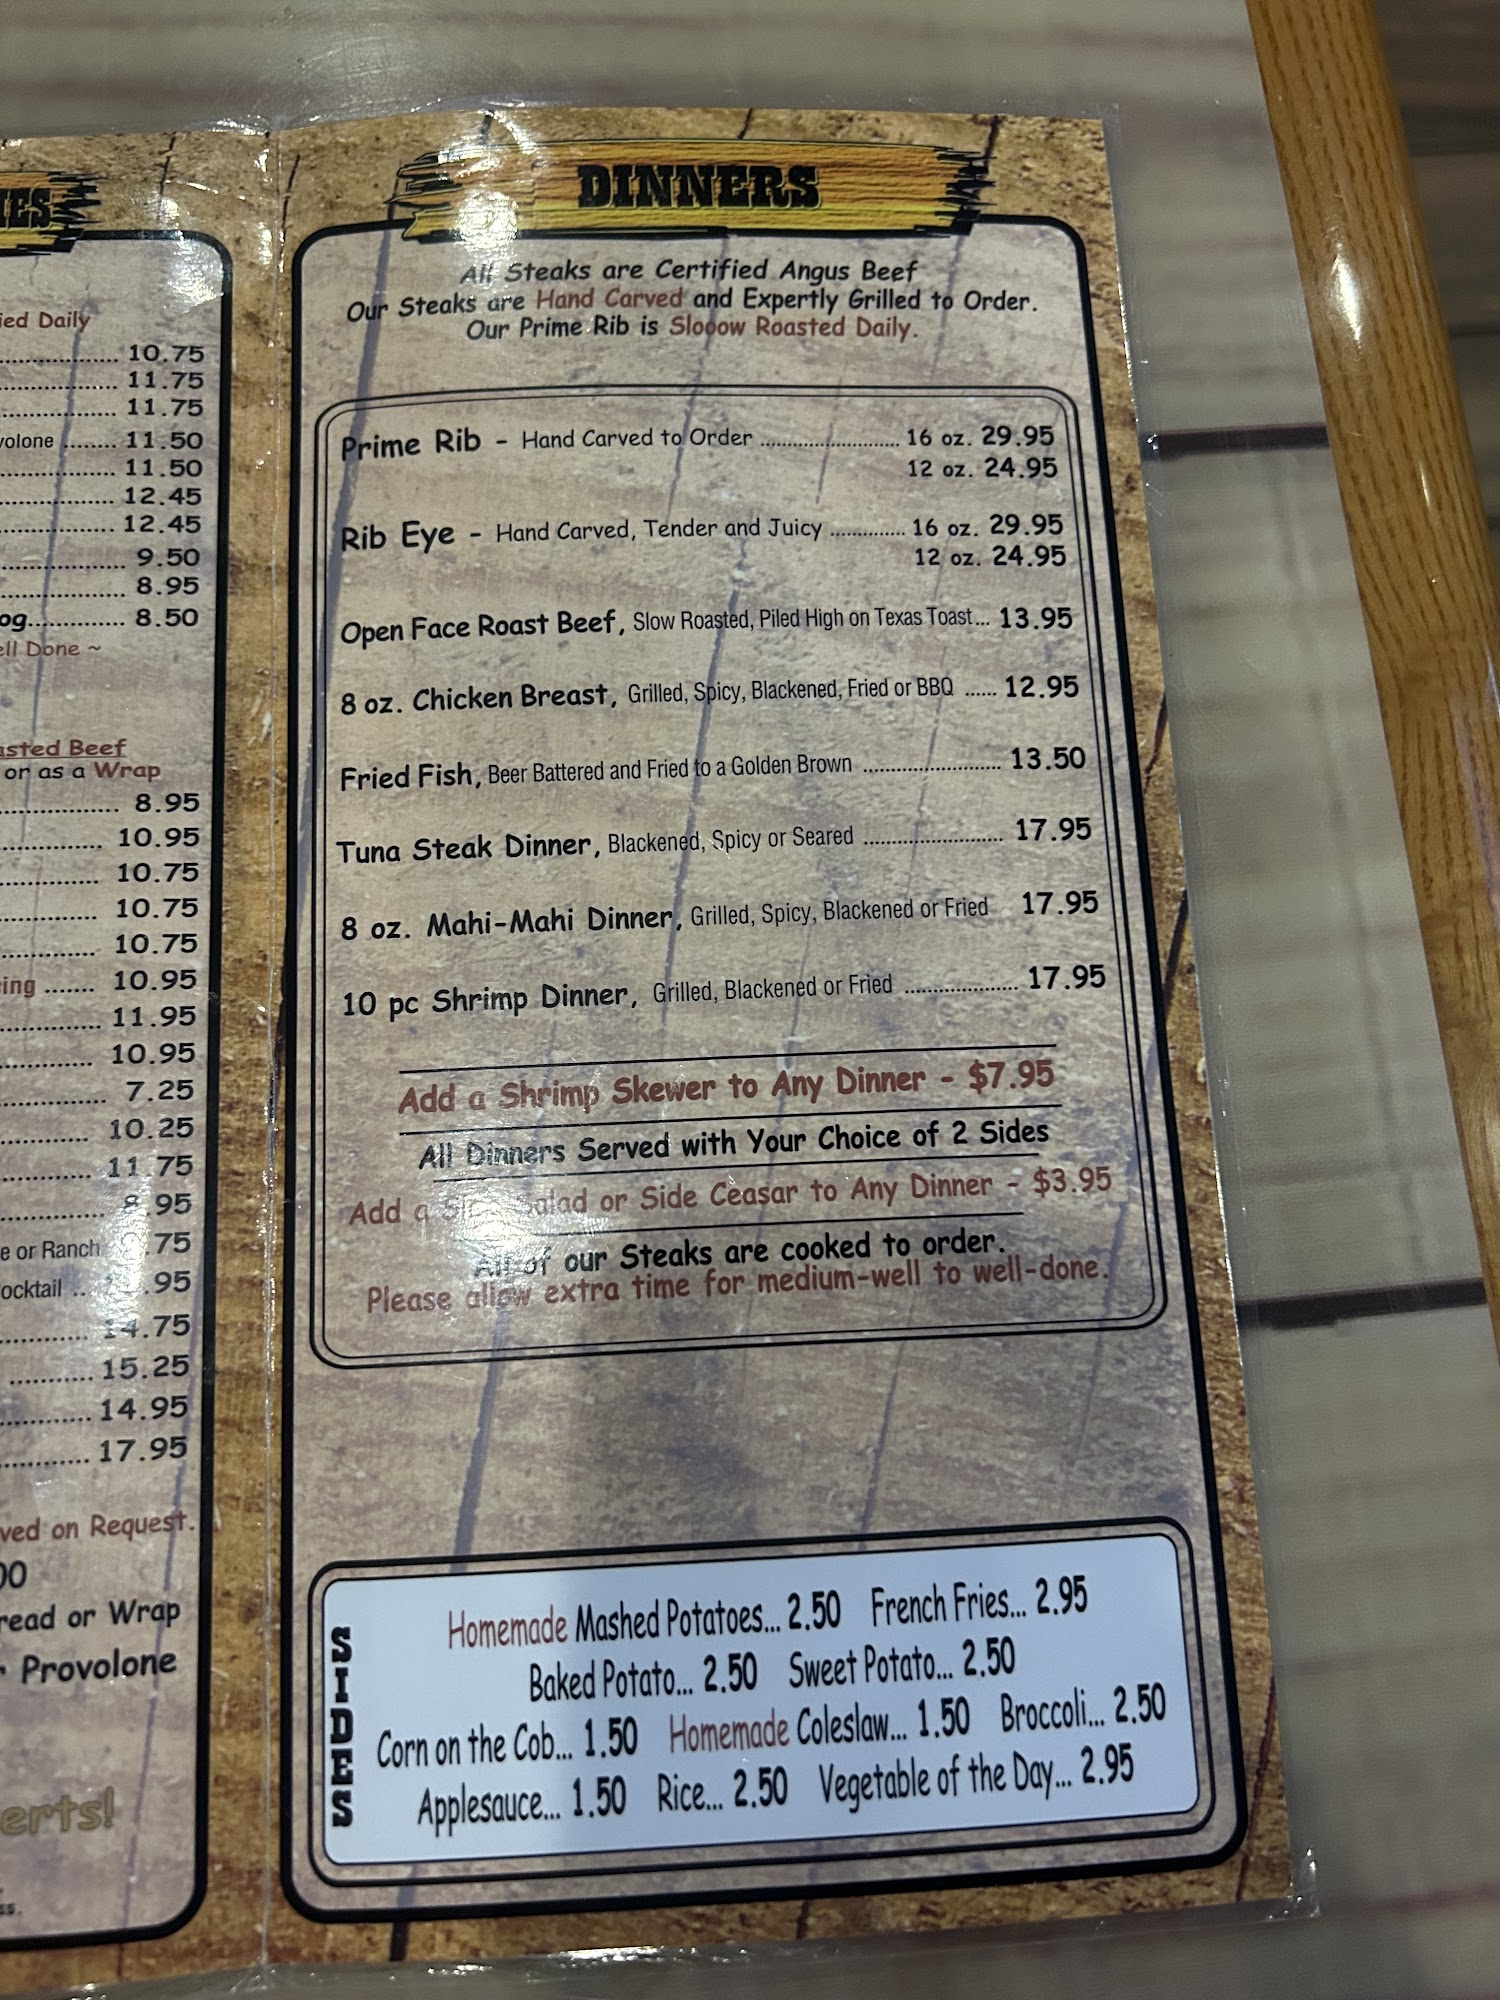 IES
ied Daily
10.75
11.75
11.75
volone ........ 11.50
11.50
12.45
12.45
9.50
8.95
og............. 8.50
ell Done ~
asted Beef
or as a Wrap
8.95
10.95
10.75
10.75
10.75
ing ....... 10.95
11.95
10.95
7.25
10.25
11.75
8.95
e or Ranch .75
ocktail .. .95
14.75
15.25
14.95
17.95
ved on Request.
00
read or Wrap
r Provolone
erts!
ss.
DINNERS
All Steaks are Certified Angus Beef
Our Steaks are Hand Carved and Expertly Grilled to Order.
Our Prime Rib is Slooow Roasted Daily.
Prime Rib - Hand Carved to Order ......................... 16 oz. 29.95
12 oz. 24.95
Rib Eye - Hand Carved, Tender and Juicy ............. 16 oz. 29.95
12 oz. 24.95
Open Face Roast Beef, Slow Roasted, Piled High on Texas Toast... 13.95
8 oz. Chicken Breast, Grilled, Spicy, Blackened, Fried or BBQ ...... 12.95
Fried Fish, Beer Battered and Fried to a Golden Brown ......................... 13.50
Tuna Steak Dinner, Blackened, Spicy or Seared ......................... 17.95
8 oz. Mahi-Mahi Dinner, Grilled, Spicy, Blackened or Fried 17.95
10 pc Shrimp Dinner, Grilled, Blackened or Fried .................... 17.95
Add a Shrimp Skewer to Any Dinner - $7.95
All Dinners Served with Your Choice of 2 Sides
Add a Side Salad or Side Ceasar to Any Dinner - $3.95
All of our Steaks are cooked to order.
Please allow extra time for medium-well to well-done.
SIDES
Homemade Mashed Potatoes... 2.50 French Fries... 2.95
Baked Potato... 2.50 Sweet Potato... 2.50
Corn on the Cob... 1.50 Homemade Coleslaw... 1.50 Broccoli... 2.50
Applesauce... 1.50 Rice... 2.50 Vegetable of the Day... 2.95